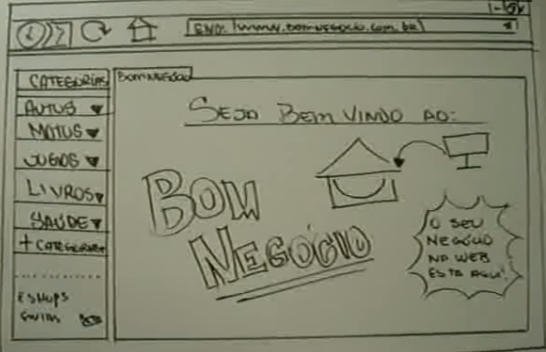 END: www.bomnegocio.com.br
CATEGORIAS
AUTOS
MOTOS
JOGOS
LIVROS
SAÚDE
+ CATEGORIAS
ESHOPS
BOMNEGÓCIO
SEJA BEM VINDO AO:
BOM
NEGÓCIO
O SEU
NEGÓCIO
NA WEB
ESTA AQUI!